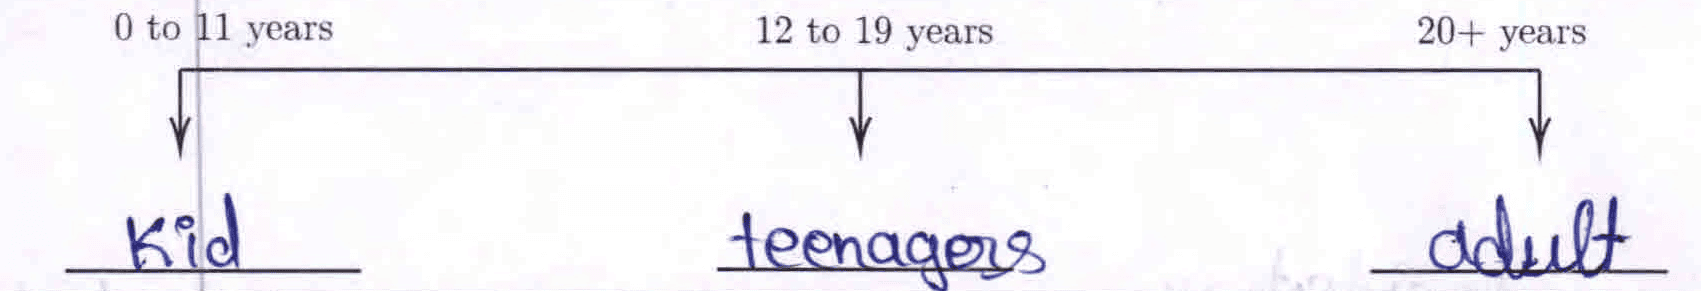 0 to 11 years 12 to 19 years 20+ years
Kid teenagers adult